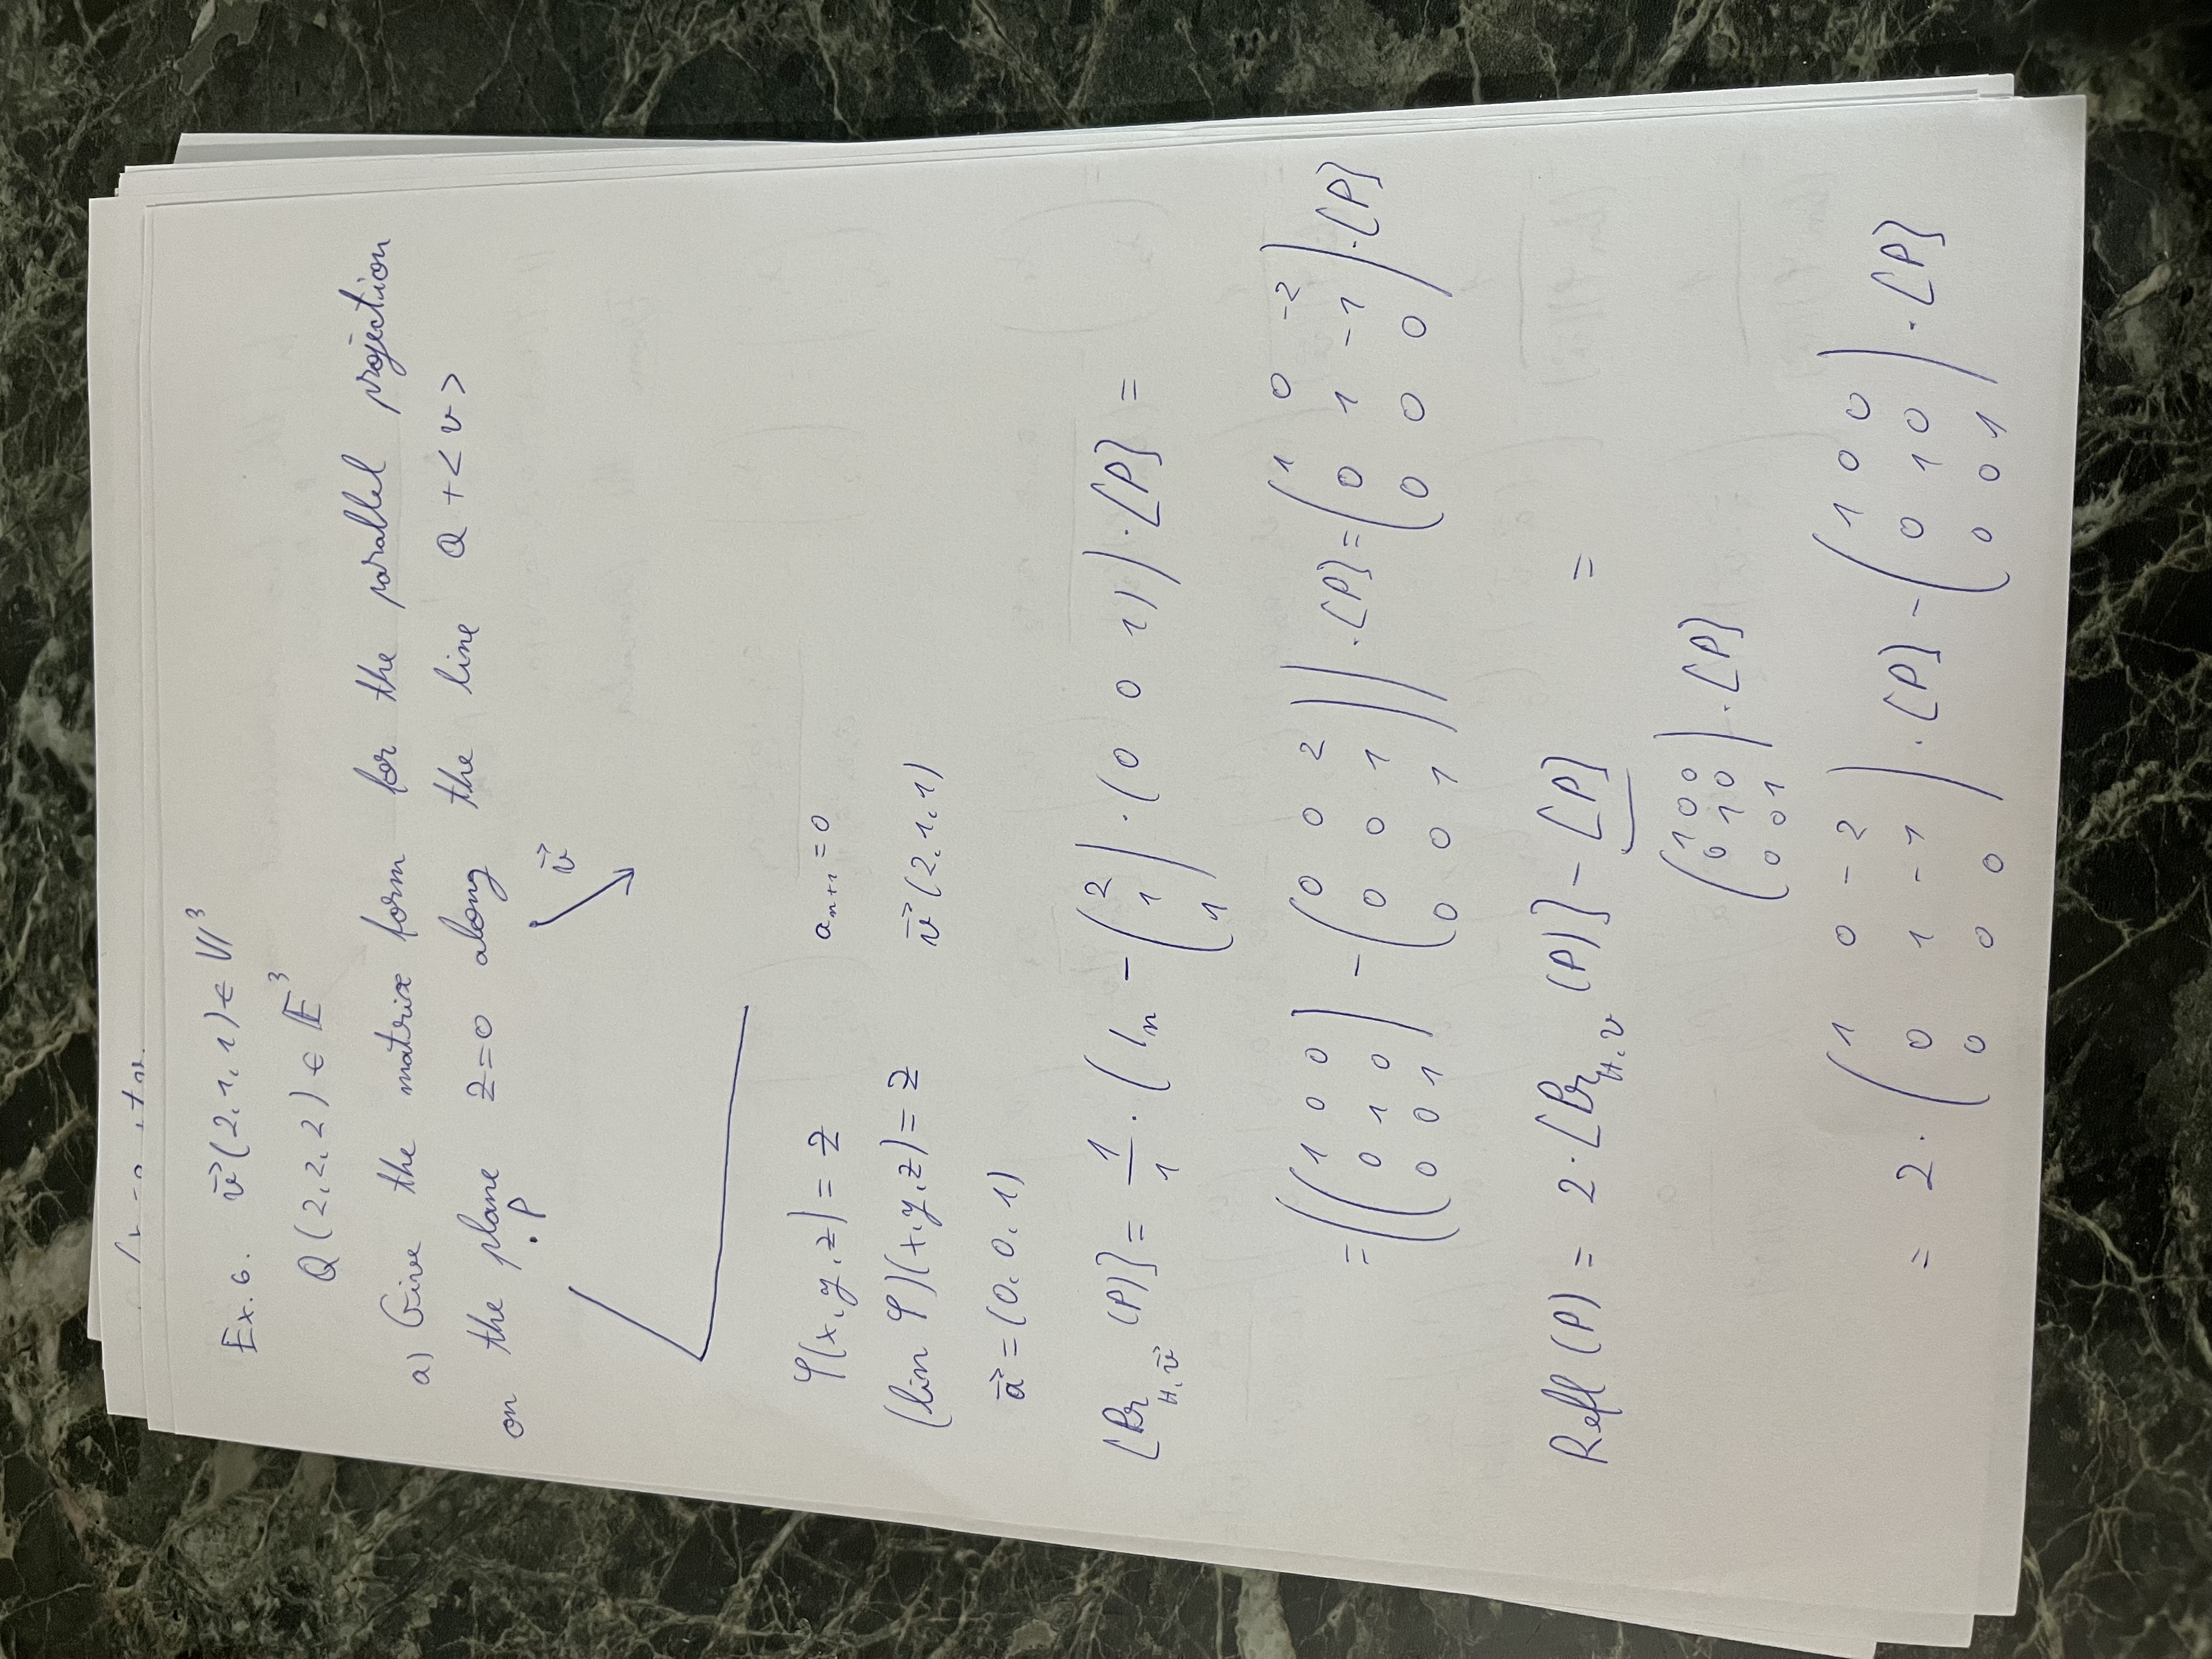 Ex. 6. v⃗(2,1,1) ∈ 𝕍³
Q(2,2,2) ∈ 𝔼³
a) Give the matrix form for the parallel projection
on the plane z=0 along the line Q+<v>
. P v⃗
φ(x,y,z) = z aₙ₊₁ = 0
(lin φ)(x,y,z) = z v⃗(2,1,1)
a⃗ = (0,0,1)
[Pr_{H,v⃗}(P)] = 1/1 · (Iₙ − (2; 1; 1) · (0 0 1)) · [P] =
= ((1 0 0; 0 1 0; 0 0 1) − (0 0 2; 0 0 1; 0 0 1)) · [P] = (1 0 -2; 0 1 -1; 0 0 0) · [P]
Refl(P) = 2 · [Pr_{H,v}(P)] − [P] =
(1 0 0; 0 1 0; 0 0 1) · [P]
= 2 · (1 0 -2; 0 1 -1; 0 0 0) · [P] − (1 0 0; 0 1 0; 0 0 1) · [P]